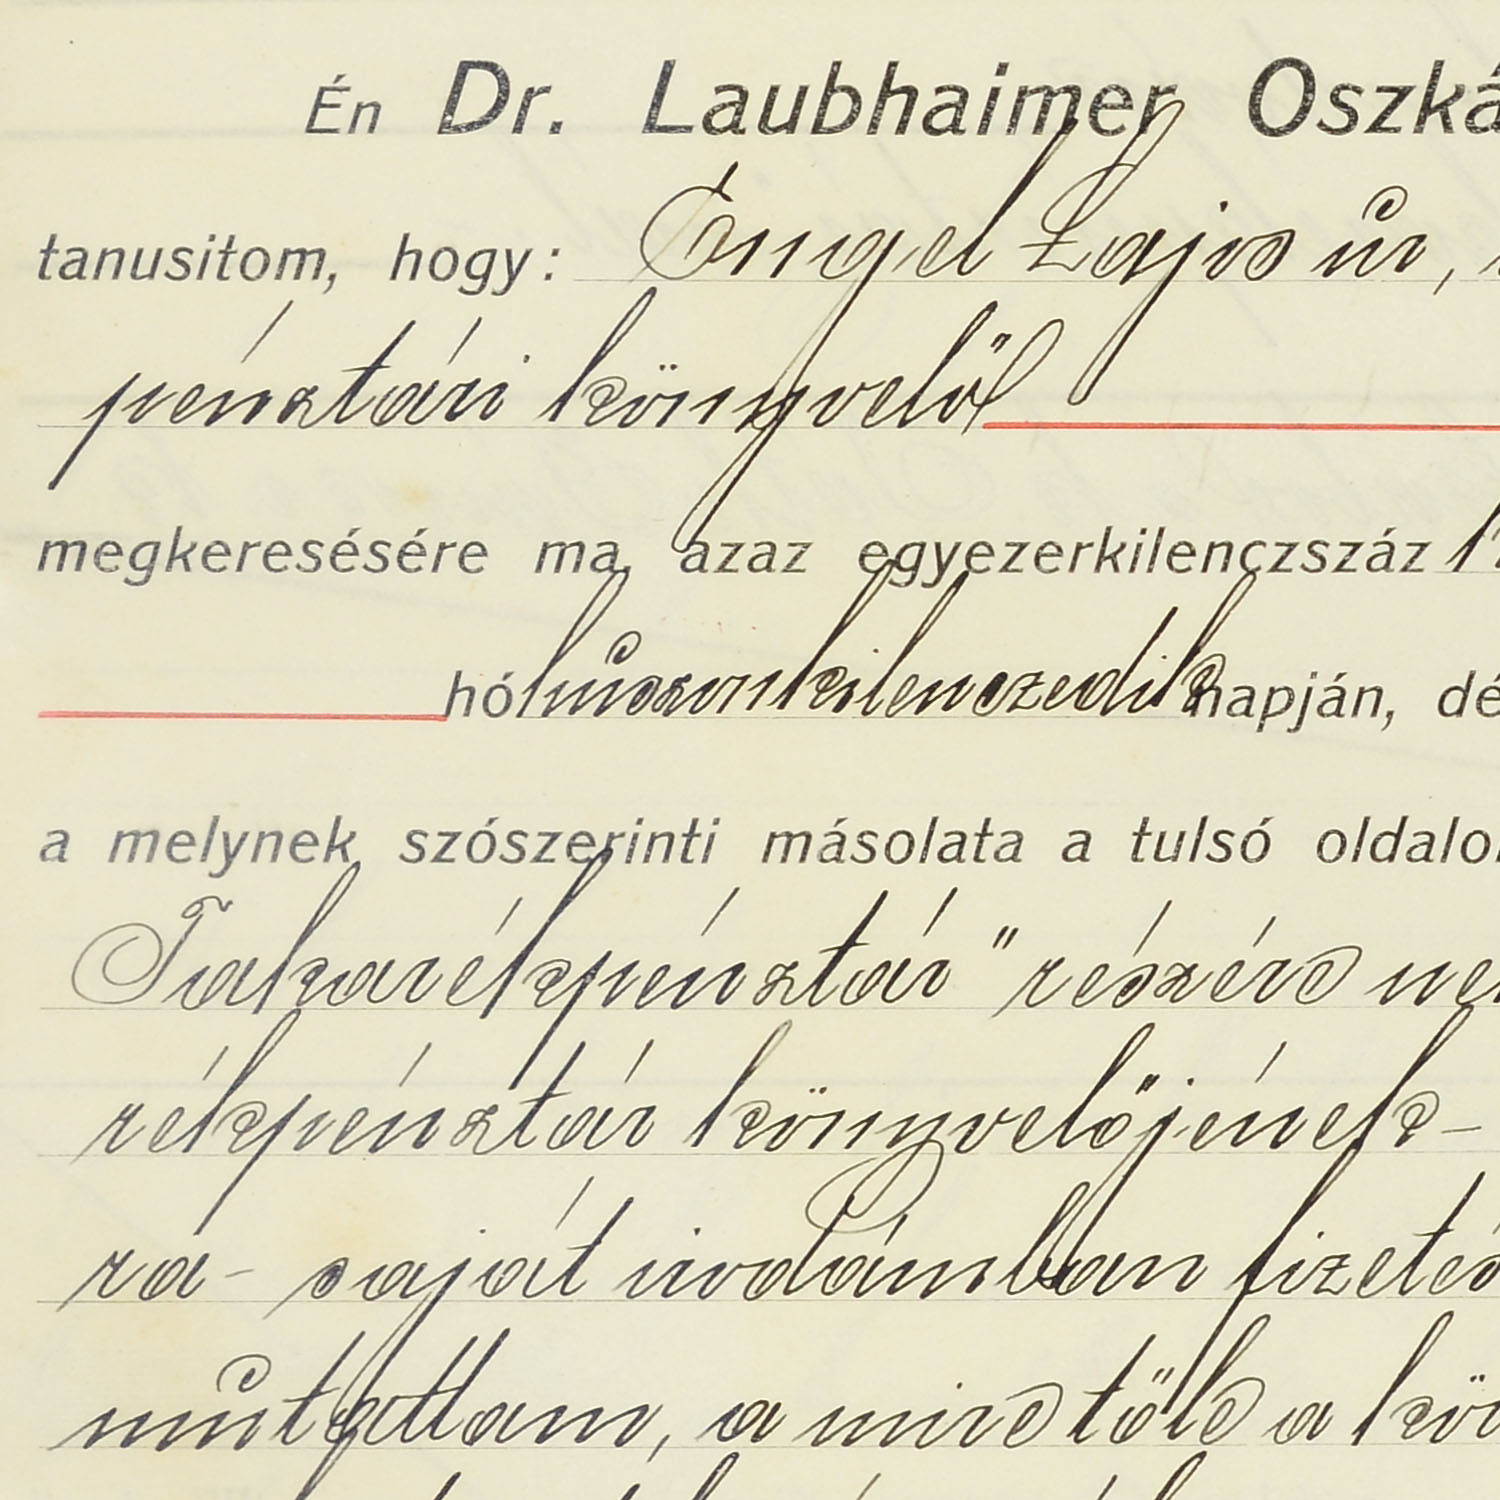 Én Dr. Laubhaimer Oszká
tanusitom, hogy: Engel Lajos úr,
pénztári könyvelő
megkeresésére ma, azaz egyezerkilenczszáz 1
hó húszonkilenczedik napján, dé
a melynek szószerinti másolata a tulsó oldalo
Takarékpénztár" részére
rékpénztár könyvelőjének-
ra- saját irodámban fizetés
mútattam, a mire tőle a kö